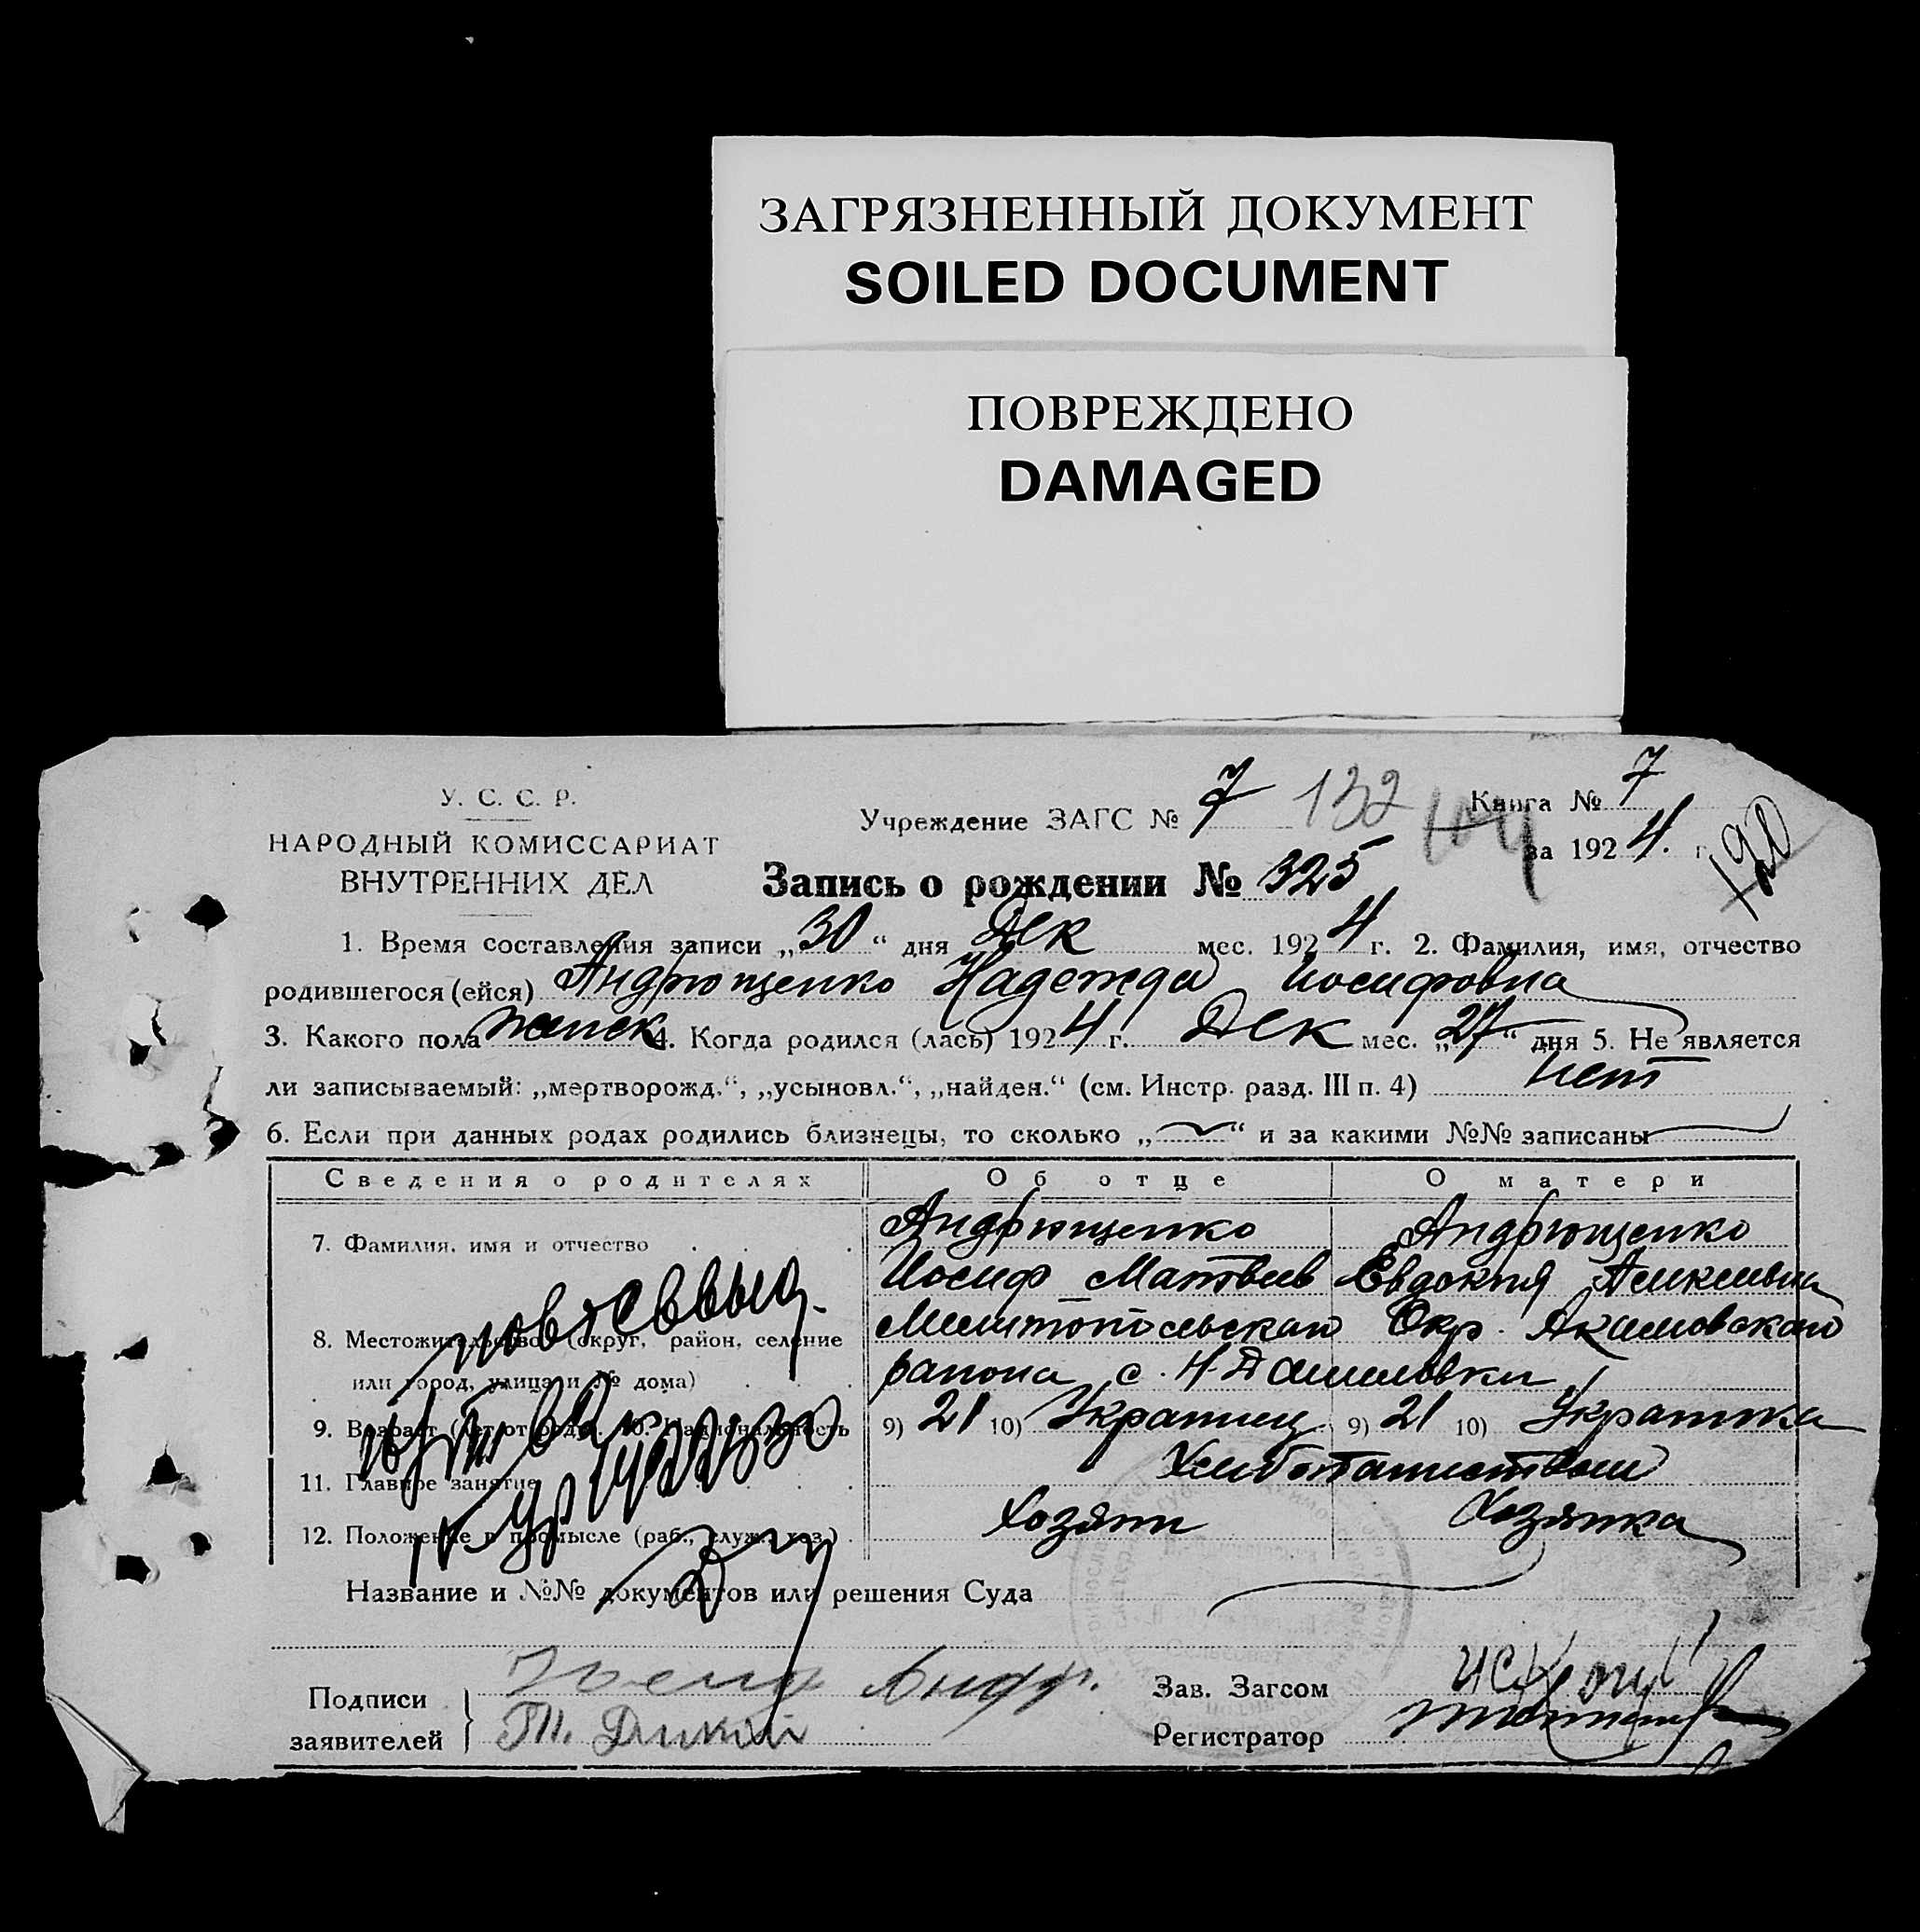 ЗАГРЯЗНЕННЫЙ ДОКУМЕНТ
SOILED DOCUMENT
ПОВРЕЖДЕНО
DAMAGED
У. С. С. Р.
НАРОДНЫЙ КОМИССАРИАТ
ВНУТРЕННИХ ДЕЛ
Учреждение ЗАГС № 7 132
Книга № 7
за 1924. г.
120
Запись о рождении № 325
1. Время составления записи „30“ дня Дек мес. 1924 г. 2. Фамилия, имя, отчество
родившегося (ейся) Андрющенко Надежда Иосифовна
3. Какого пола женск 4. Когда родился (лась) 1924 г. Дек мес. „27“ дня 5. Не является
ли записываемый: „мертворожд.“, „усыновл.“, „найден.“ (см. Инстр. разд. III п. 4) нет
6. Если при данных родах родились близнецы, то сколько „ “ и за какими №№ записаны
Сведения о родителях Об отце О матери
7. Фамилия, имя и отчество Андрющенко Андрющенко
Иосиф Матвеев Евдокия
8. Местожительство (округ, район, селение Мелитопольского Окр. Акимовского
или город, улица и № дома) района с. Н-Даниловки
9. Возраст (лет от роду). 10. Национальность 9) 21 10) Украинец 9) 21 10) Украинка
11. Главное занятие Хлебопашеством
12. Положение в промысле (раб., служ., хоз.) Хозяин Хозяйка
Название и №№ документов или решения Суда
Подписи
заявителей
Андр.
Дикий
Зав. Загсом
Регистратор